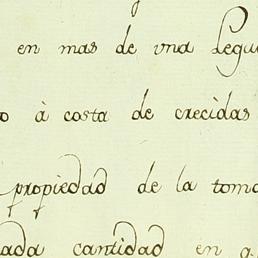 en mas de vna Legu
o à costa de crecidas
propiedad de la toma
ada cantidad en